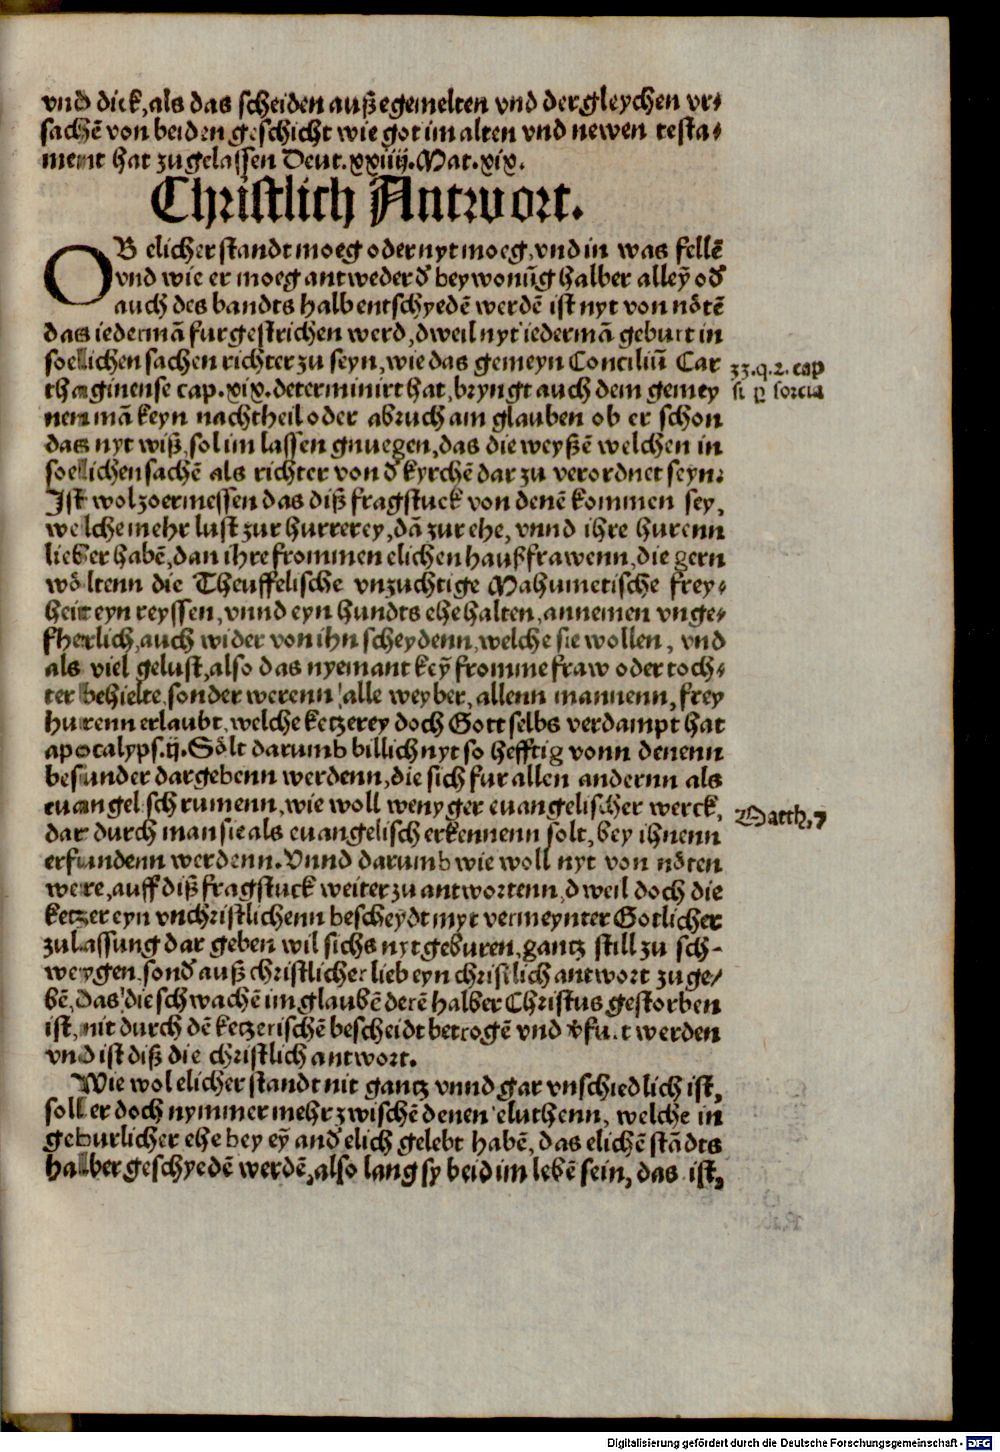 vnd dick, als das scheiden außegemelten vnd der gleychen vr⸗
sachē von beiden geschicht wie got im alten vnd newen testa⸗
ment hat zugelassen Deut. xxiiij. Mat. xix.
Christlich Antwort.
OB elicher standt moeg oder nyt moeg, vnd in was fellē
vnd wie er moeg antweder d̄ beywonūg halber alleȳ od̄
auch des bandts halb entschyedē werdē ist nyt von nötē
das iedermā furgestrichen werd, dweil nyt iedermā geburt in
soelichen sachen richter zu seyn, wie das gemeyn Conciliū Car
thaginense cap. xix. determinirt hat, bryngt auch dem gemey
nen mā keyn nachtheil oder abruch am glauben ob er schon
das nyt wiß, sol im lassen gnuegen, das die weyßē welchen in
soelichen sachē als richter von d̄ kyrchē dar zu verordnet seyn.
Ist wol zoermessen das diß fragstuck von denē kommen sey,
welche mehr lust zur hurrerey, dā zur ehe, vnnd ihre hurenn
lieber habē, dan ihre frommen elichen haußfrawenn, die gern
wöltenn die Theuffelische vnzuchtige Mahumetische frey⸗
heit eyn reyssen, vnnd eyn hundts ehe halten, annemen vnge⸗
fherlich, auch wider von ihn scheydenn, welche sie wollen, vnd
als viel gelust, also das nyemant keȳ fromme fraw oder toch⸗
ter behielte, sonder werenn alle weyber, allenn mannenn, frey
hurenn erlaubt, welche ketzerey doch Gott selbs verdampt hat
apocalyps. ij. Sölt darumb billich nyt so hefftig vonn denenn
besunder dargebenn werdenn, die sich fur allen andernn als
euangelisch rumenn, wie woll wenyger euangelischer werck,
dar durch man sie als euangelisch erkennenn solt, bey ihnenn
erfundenn werdenn. Vnnd darumb wie woll nyt von nöten
were, auff diß fragstuck weiter zu antwortenn, dweil doch die
ketzer eyn vnchristlichenn bescheydt myt vermeynter Gotlicher
zulassung dar geben wil sichs nyt geburen, gantz still zu sch-
weygen, sond̄ auß christlicher lieb eyn christlich antwort zu ge⸗
bē, das die schwachē im glaubē derē halber Christus gestorben
ist, nit durch dē ketzerischē bescheidt betrogē vnd v̄furt werden
vnd ist diß die christlich antwort.
Wie wol elicher standt nit gantz vnnd gar vnschiedlich ist,
soll er doch nymmer mehr zwischē denen eluthenn, welche in
geburlicher ehe bey eȳ and̄ elich gelebt habē, das elichē stādts
halber geschyedē werdē, also lang sy beid im lebē sein, das ist,
33. q. 2. cap
si ꝑ sorciā
Matth, 7
Digitalisierung gefördert durch die Deutsche Forschungsgemeinschaft - DFG